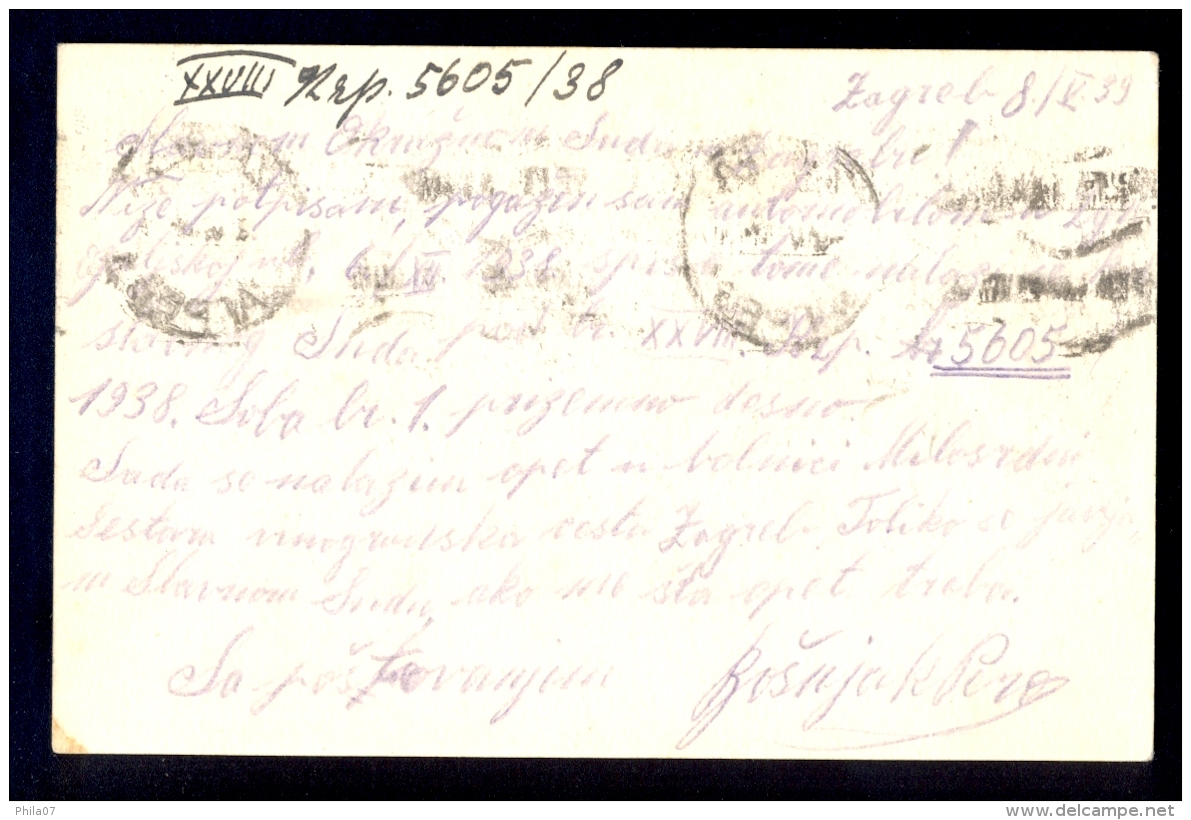 XXVIII Kzp. 5605/38
Zagreb 8./V.39
Slavnom Okružnom Sudu u Zagrebu!
Niže potpisani, pogažen sam automobilom u
ul. 6. XII 1938. spisi o tome nalaze se kod
slavnog Suda pod br. XXVIII. Kzp. 5605
1938. Soba br. 1. prizemno desno.
Sada se nalazim opet u bolnici Milosrdni
Sestara vinogradska cesta Zagreb. Toliko se javlja
m Slavnom Sudu, ako me šta opet treba.
Sa poštovanjem Bošnjak Pero
Phila07